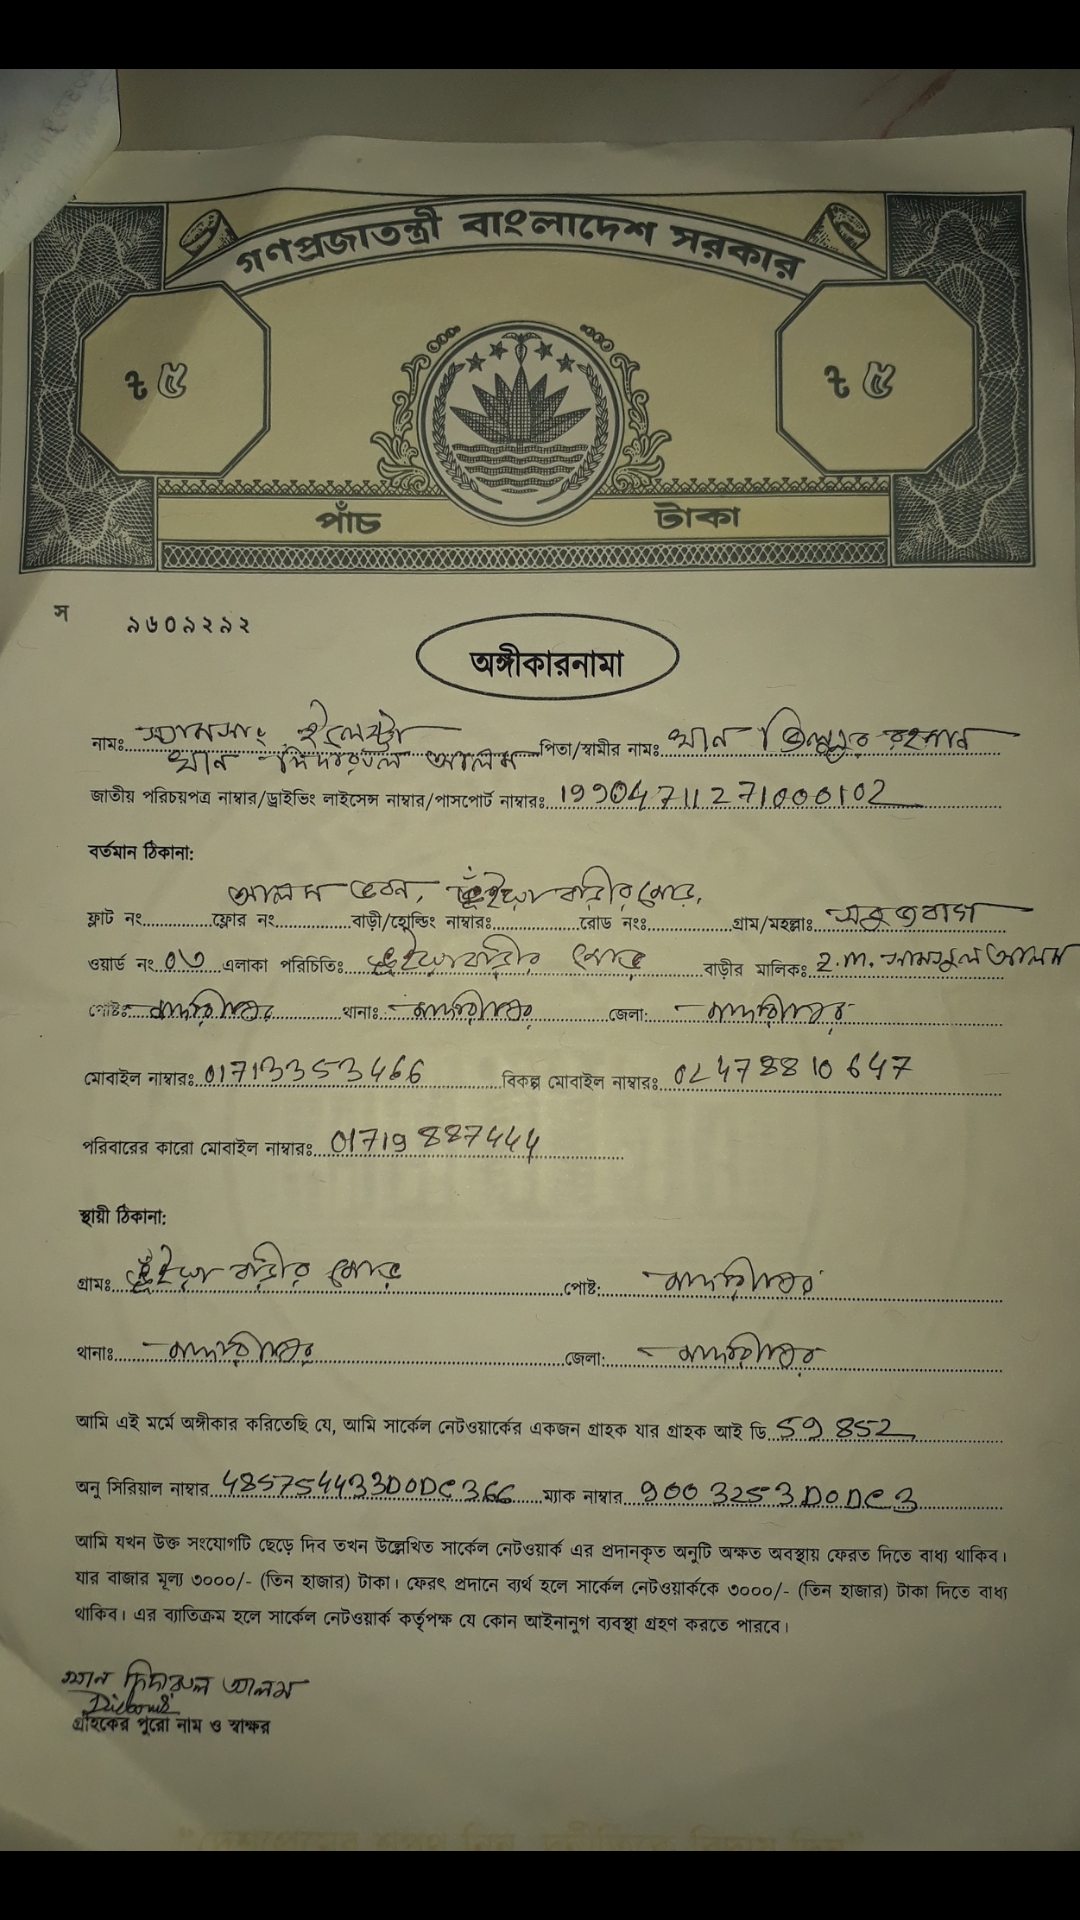 গণপ্রজাতন্ত্রী বাংলাদেশ সরকার
ট ৫ ট ৫
পাঁচ টাকা
স ৯৬০৯২৯২
অঙ্গীকারনামা
নামঃ স্যামসাং ইলেক্ট্রা
খান দিদারুল আলম পিতা/স্বামীর নামঃ খান জিল্লুর রহমান
জাতীয় পরিচয়পত্র নাম্বার/ড্রাইভিং লাইসেন্স নাম্বার/পাসপোর্ট নাম্বারঃ 19904711271000102
বর্তমান ঠিকানা:
আলম ভবন, ভূঁইয়া বাড়ীর মোড়,
ফ্লাট নং ফ্লোর নং বাড়ী/হোল্ডিং নাম্বারঃ রোড নংঃ গ্রাম/মহল্লাঃ সবুজবাগ
ওয়ার্ড নং 03 এলাকা পরিচিতিঃ ভূইয়া বাড়ীর মোড় বাড়ীর মালিকঃ শামসুল আলম
পোষ্টঃ মাদারীপুর থানাঃ মাদারীপুর জেলা: মাদারীপুর
মোবাইল নাম্বারঃ 01713353466 বিকল্প মোবাইল নাম্বারঃ 02478810647
পরিবারের কারো মোবাইল নাম্বারঃ 01719887444
স্থায়ী ঠিকানা:
গ্রামঃ ভূঁইয়া বাড়ীর মোড় পোষ্ট: মাদারীপুর
থানাঃ মাদারীপুর জেলা: মাদারীপুর
আমি এই মর্মে অঙ্গীকার করিতেছি যে, আমি সার্কেল নেটওয়ার্কের একজন গ্রাহক যার গ্রাহক আই ডি 59852
অনু সিরিয়াল নাম্বার 485754433D0DC366 ম্যাক নাম্বার 9003253D0DC3
আমি যখন উক্ত সংযোগটি ছেড়ে দিব তখন উল্লেখিত সার্কেল নেটওয়ার্ক এর প্রদানকৃত অনুটি অক্ষত অবস্থায় ফেরত দিতে বাধ্য থাকিব।
যার বাজার মূল্য ৩০০০/- (তিন হাজার) টাকা। ফেরৎ প্রদানে ব্যর্থ হলে সার্কেল নেটওয়ার্ককে ৩০০০/- (তিন হাজার) টাকা দিতে বাধ্য
থাকিব। এর ব্যতিক্রম হলে সার্কেল নেটওয়ার্ক কর্তৃপক্ষ যে কোন আইনানুগ ব্যবস্থা গ্রহণ করতে পারবে।
খান দিদারুল আলম
গ্রাহকের পুরো নাম ও স্বাক্ষর